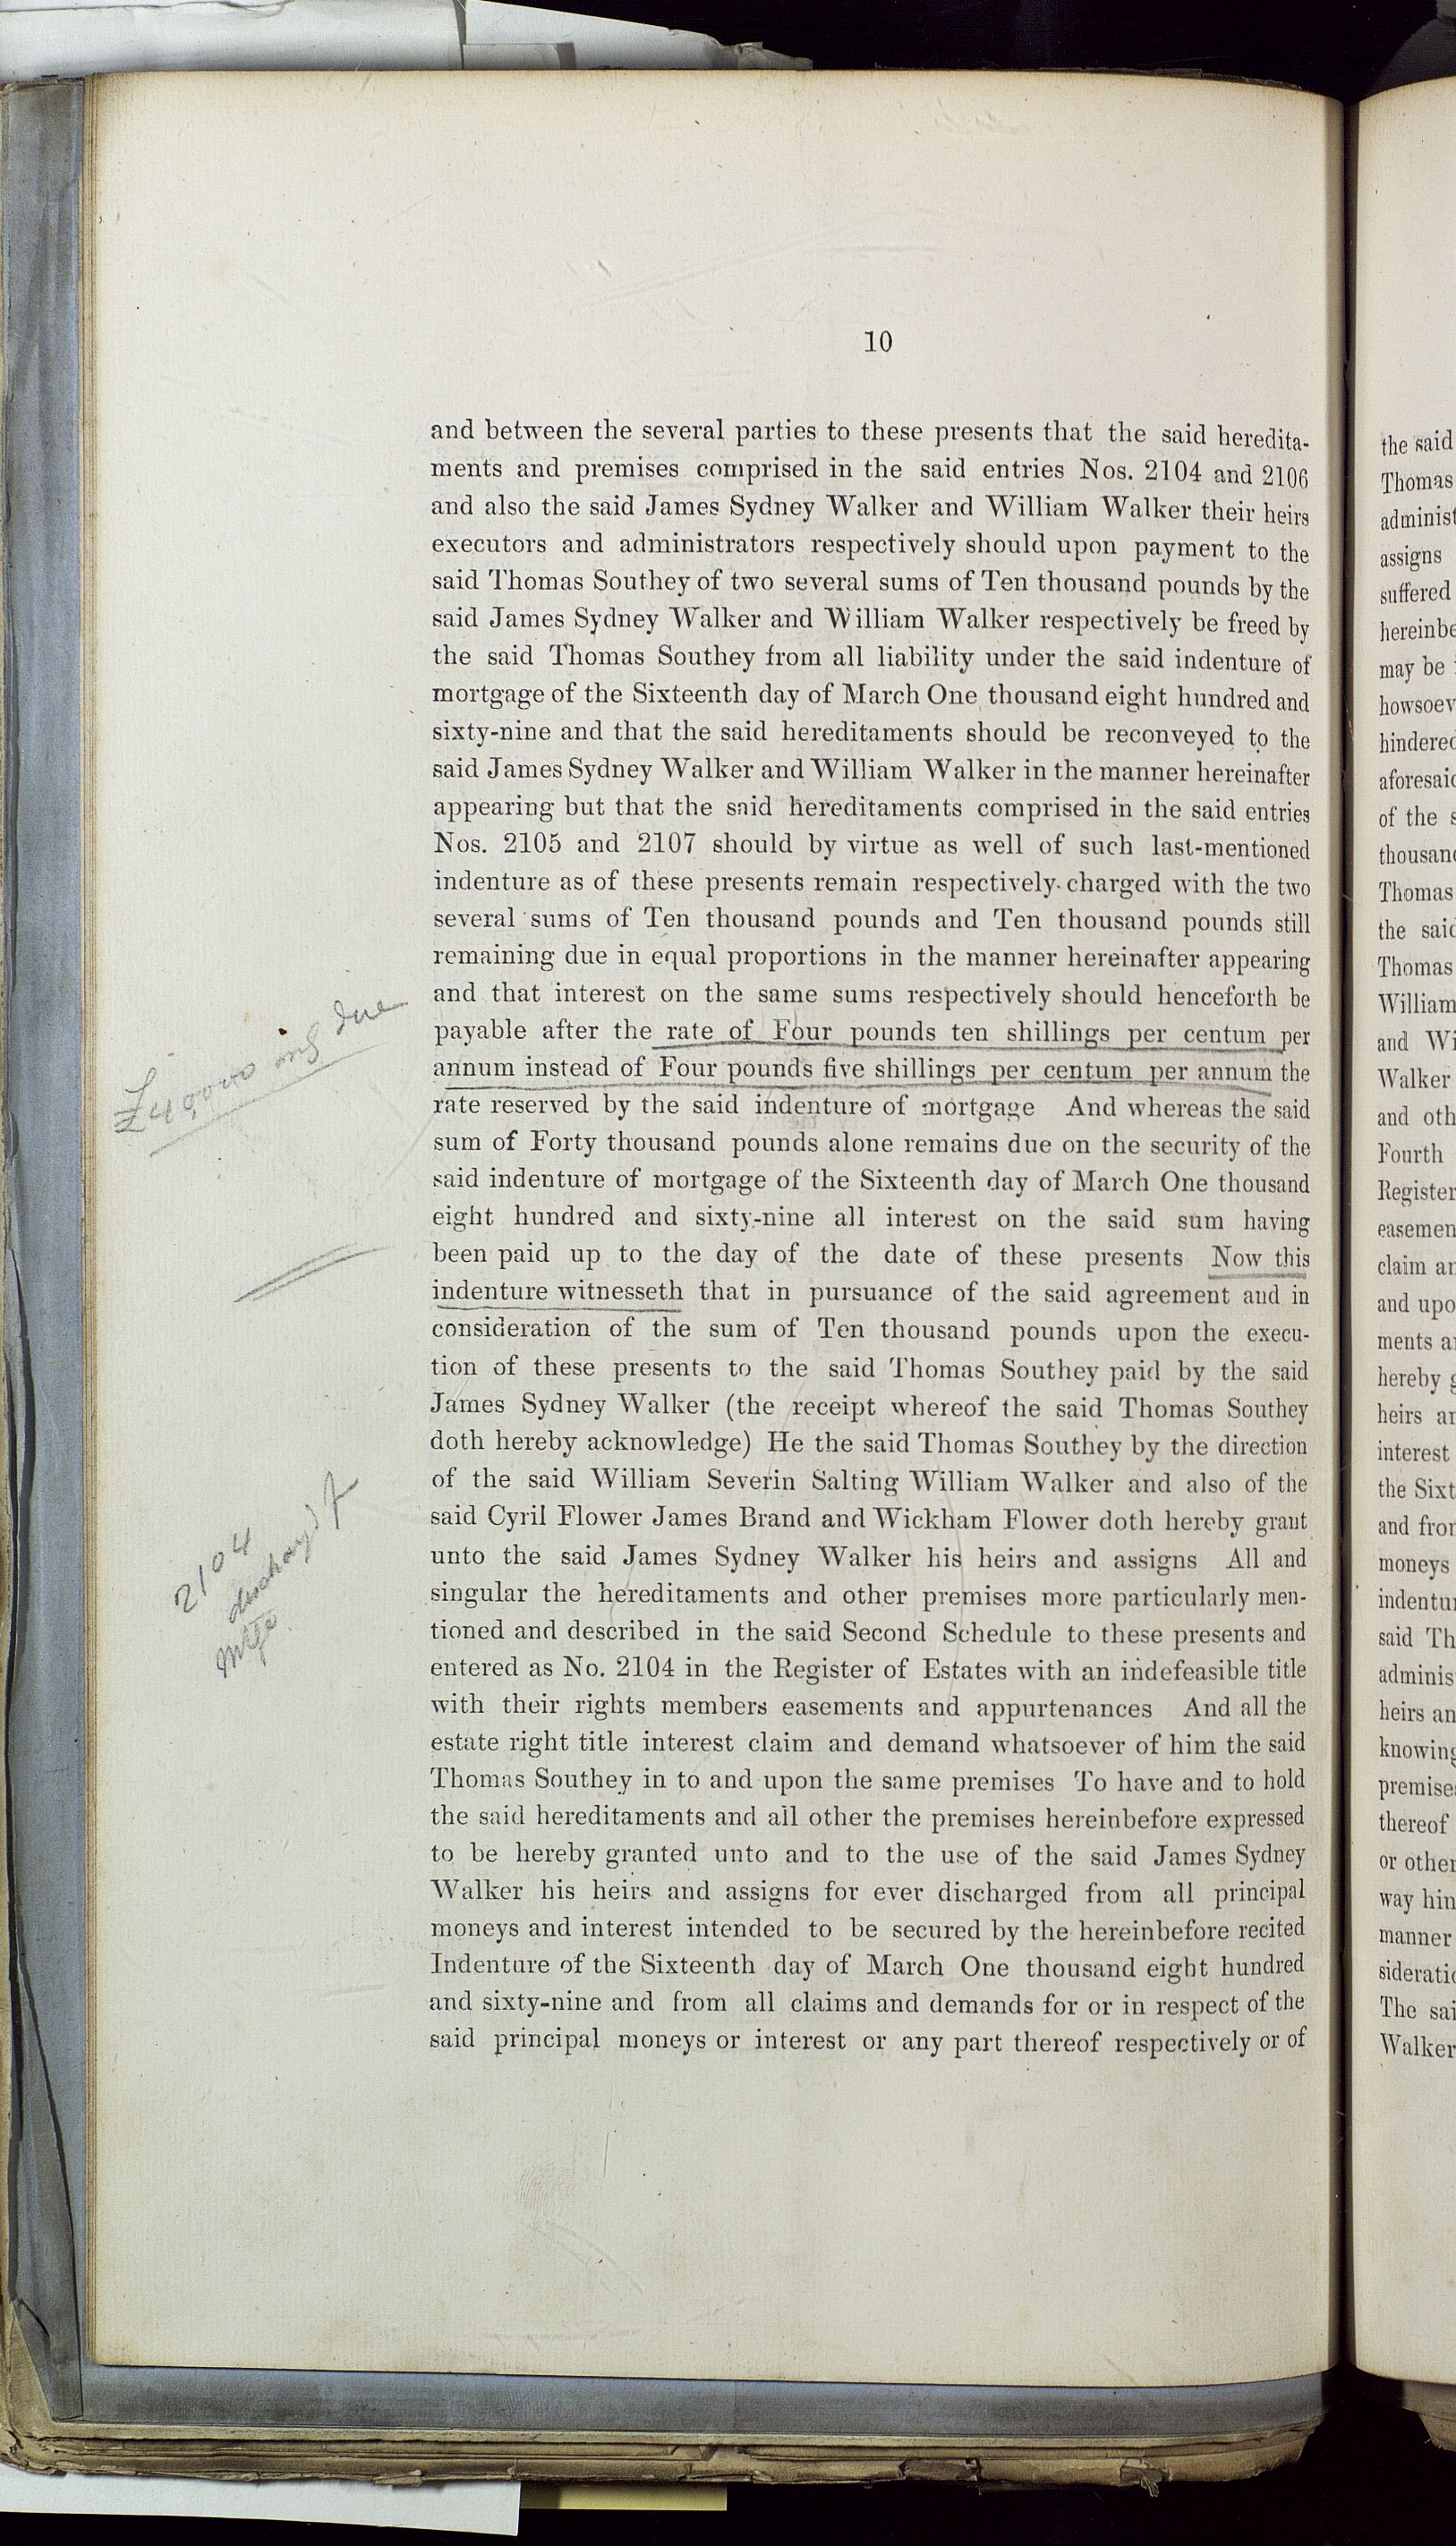 10
and between the several parties to these presents that the said heredita-
ments and premises comprised in the said entries Nos. 2104 and 2106
and also the said James Sydney Walker and William Walker their heirs
executors and administrators respectively should upon payment to the
said Thomas Southey of two several sums of Ten thousand pounds by the
said James Sydney Walker and William Walker respectively be freed by
the said Thomas Southey from all liability under the said indenture of
mortgage of the Sixteenth day of March One thousand eight hundred and
sixty-nine and that the said hereditaments should be reconveyed to the
said James Sydney Walker and William Walker in the manner hereinafter
appearing but that the said hereditaments comprised in the said entries
Nos. 2105 and 2107 should by virtue as well of such last-mentioned
indenture as of these presents remain respectively charged with the two
several sums of Ten thousand pounds and Ten thousand pounds still
remaining due in equal proportions in the manner hereinafter appearing
and that interest on the same sums respectively should henceforth be
payable after the rate of Four pounds ten shillings per centum per
annum instead of Four pounds five shillings per centum per annum the
rate reserved by the said indenture of mortgage And whereas the said
sum of Forty thousand pounds alone remains due on the security of the
said indenture of mortgage of the Sixteenth day of March One thousand
eight hundred and sixty-nine all interest on the said sum having
been paid up to the day of the date of these presents Now this
indenture witnesseth that in pursuance of the said agreement and in
consideration of the sum of Ten thousand pounds upon the execu-
tion of these presents to the said Thomas Southey paid by the said
James Sydney Walker (the receipt whereof the said Thomas Southey
doth hereby acknowledge) He the said Thomas Southey by the direction
of the said William Severin Salting William Walker and also of the
said Cyril Flower James Brand and Wickham Flower doth hereby grant
unto the said James Sydney Walker his heirs and assigns All and
singular the hereditaments and other premises more particularly men-
tioned and described in the said Second Schedule to these presents and
entered as No. 2104 in the Register of Estates with an indefeasible title
with their rights members easements and appurtenances And all the
estate right title interest claim and demand whatsoever of him the said
Thomas Southey in to and upon the same premises To have and to hold
the said hereditaments and all other the premises hereinbefore expressed
to be hereby granted unto and to the use of the said James Sydney
Walker his heirs and assigns for ever discharged from all principal
moneys and interest intended to be secured by the hereinbefore recited
Indenture of the Sixteenth day of March One thousand eight hundred
and sixty-nine and from all claims and demands for or in respect of the
said principal moneys or interest or any part thereof respectively or of
£40,000 due
2104
mtge
the said
Thomas
assigns
suffered
may be
of the
thousand
Thomas
the said
Thomas
William
and
Walker
and
Fourth
claim
and
ments
hereby
heirs
interest
the
and
moneys
said
heirs
thereof
or
way
manner
The
Walker